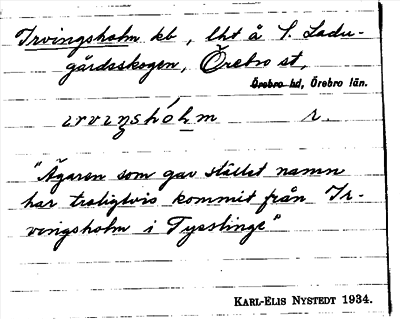 Irvingsholm kb, lht å S. Ladu-
gårdsskogen, Örebro st,
Örebro hd, Örebro län.
ırvıŋshólm r.
"Ägaren som gav stället namn
har troligtvis kommit från Ir-
vingsholm i Tysslinge"
KARL-ELIS NYSTEDT 1934.